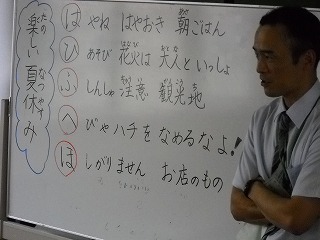 楽しい夏休み
たの なつやす
は やね はやおき 朝ごはん
ひ あそび 花火は 大人といっしょ
ふ しんしゃ 注意 観光地
へ びやハチをなめるなよ!
ほ しがりません お店のもの